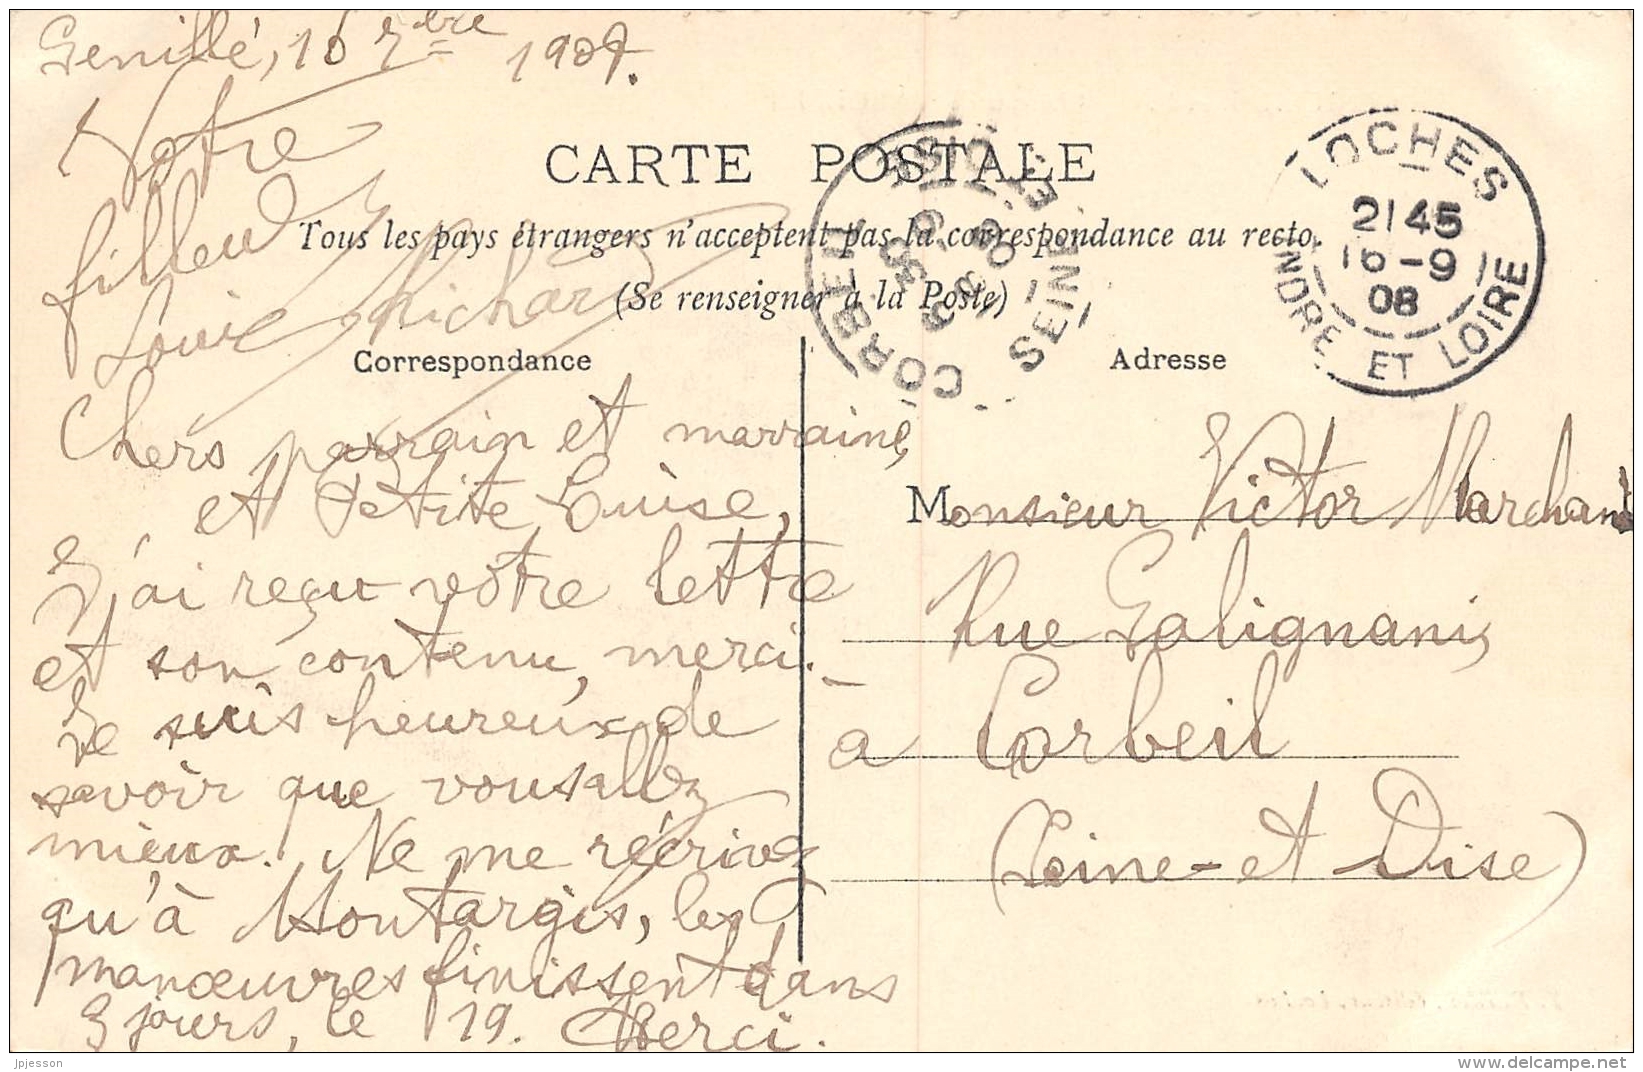 Genillé, 16 7bre 1908.
Votre
filleul
Louis Richard
CARTE POSTALE
Tous les pays étrangers n'acceptent pas la correspondance au recto.
(Se renseigner à la Poste)
Correspondance
Adresse
LOCHES
21 45
16 - 9
08
INDRE ET LOIRE
CORBEIL
SEINE
Chers parrain et marraine,
et Petite Louise,
J'ai reçu votre lettre
et son contenu, merci. -
Je suis heureux de
savoir que vous allez
mieux. Ne me récrivez
qu'à Montargis, les
manœuvres finissent dans
3 jours, le 19. Merci.
Monsieur Victor Marchand
Rue Galignani,
a Corbeil
(Seine-et Oise)
jpjesson
www.delcampe.net